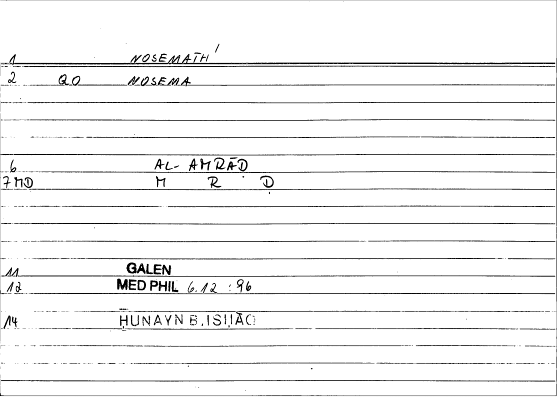 1 NOSEMATH'
2 QO NOSEMA
6 AL- AMRĀḌ
7 MD M R Ḍ
11 GALEN
12 MED PHIL 6.12 : 96
14 ḤUNAYN B. ISḤĀQ